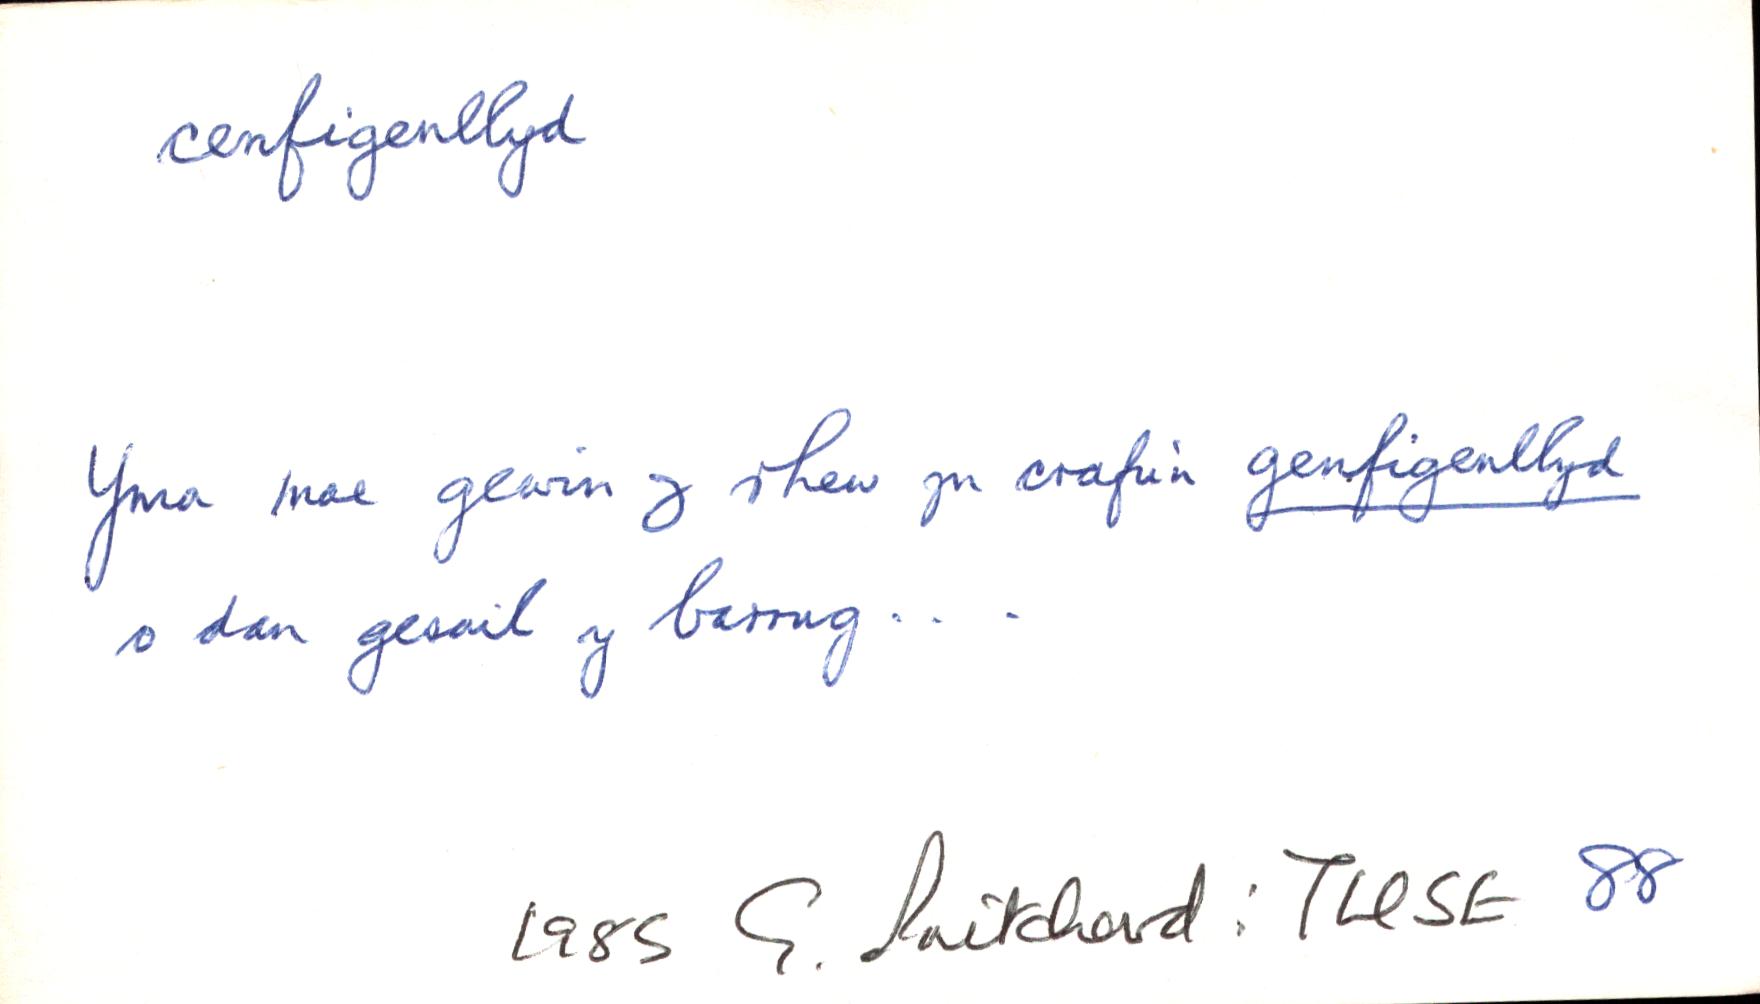 cenfigenllyd
Yma mae gewin y rhew yn crafu'n genfigenllyd
o dan gesail y barrug . . . .
1985 E. Pritchard : TLlSE 88